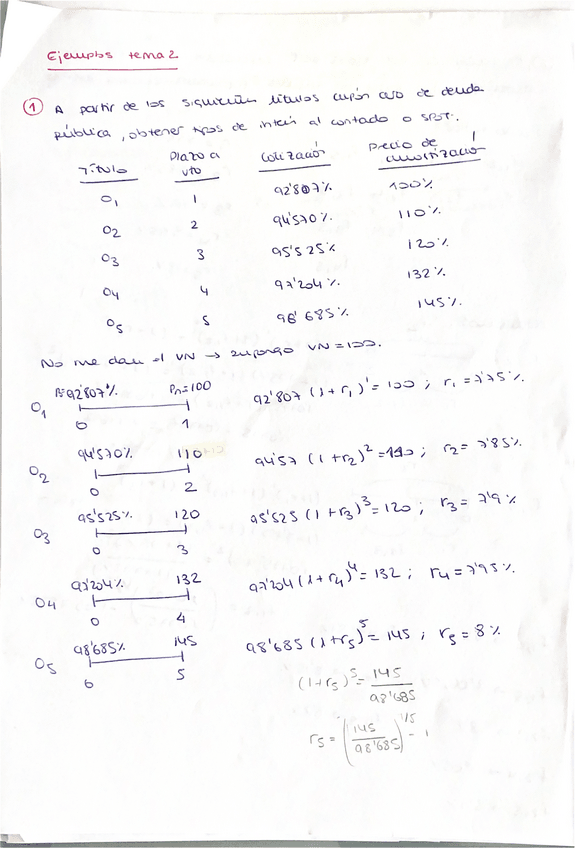 Ejemplos tema 2
① A partir de los siguientes títulos cupón cero de deuda
pública, obtener tipos de interés al contado o SPOT.
Título Plazo a vto Cotización Precio de amortización
O1 1 92'807% 100%
O2 2 94'570% 110%
O3 3 95'525% 120%
O4 4 97'204% 132%
O5 5 98'685% 145%
No me dan el VN → supongo VN=100.
O1 P=92'807% Pn=100 0 1 92'807 (1+r1)^1 = 100 ; r1 = 7'75%.
O2 94'570% 110 0 2 94'57 (1+r2)^2 = 110 ; r2 = 7'85%.
O3 95'525% 120 0 3 95'525 (1+r3)^3 = 120 ; r3 = 7'9%
O4 97'204% 132 0 4 97'204 (1+r4)^4 = 132 ; r4 = 7'95%.
O5 98'685% 145 0 5 98'685 (1+r5)^5 = 145 ; r5 = 8%
(1+r5)^5 = 145/98'685
r5 = (145/98'685)^1/5 - 1